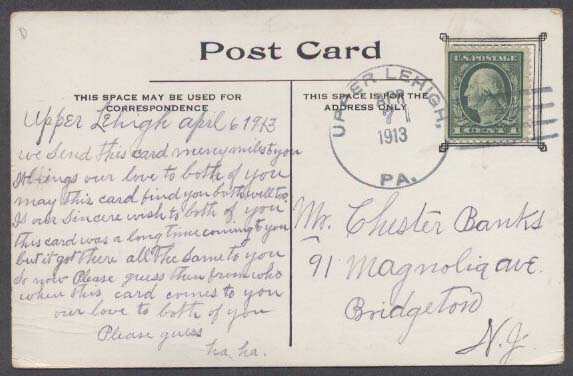 Post Card
THIS SPACE MAY BE USED FOR
CORRESPONDENCE
THIS SPACE IS FOR THE
ADDRESS ONLY
U.S. POSTAGE
1 CENT 1
UPPER LEHIGH,
APR
7
1913
PA.
Upper Lehigh april 6 1913
we send this card meny miles to you
It brings our love to both of you
may this card find you both well too
Is our Sincere wish to both of you
this card was a long time coming to you
but it got there all the Same to you
So now Please guess then from who
when this card comes to you
our love to both of you
Please guess
ha. ha.
Mr. Chester Banks
91 Magnolia ave.
Bridgeton
N.J.